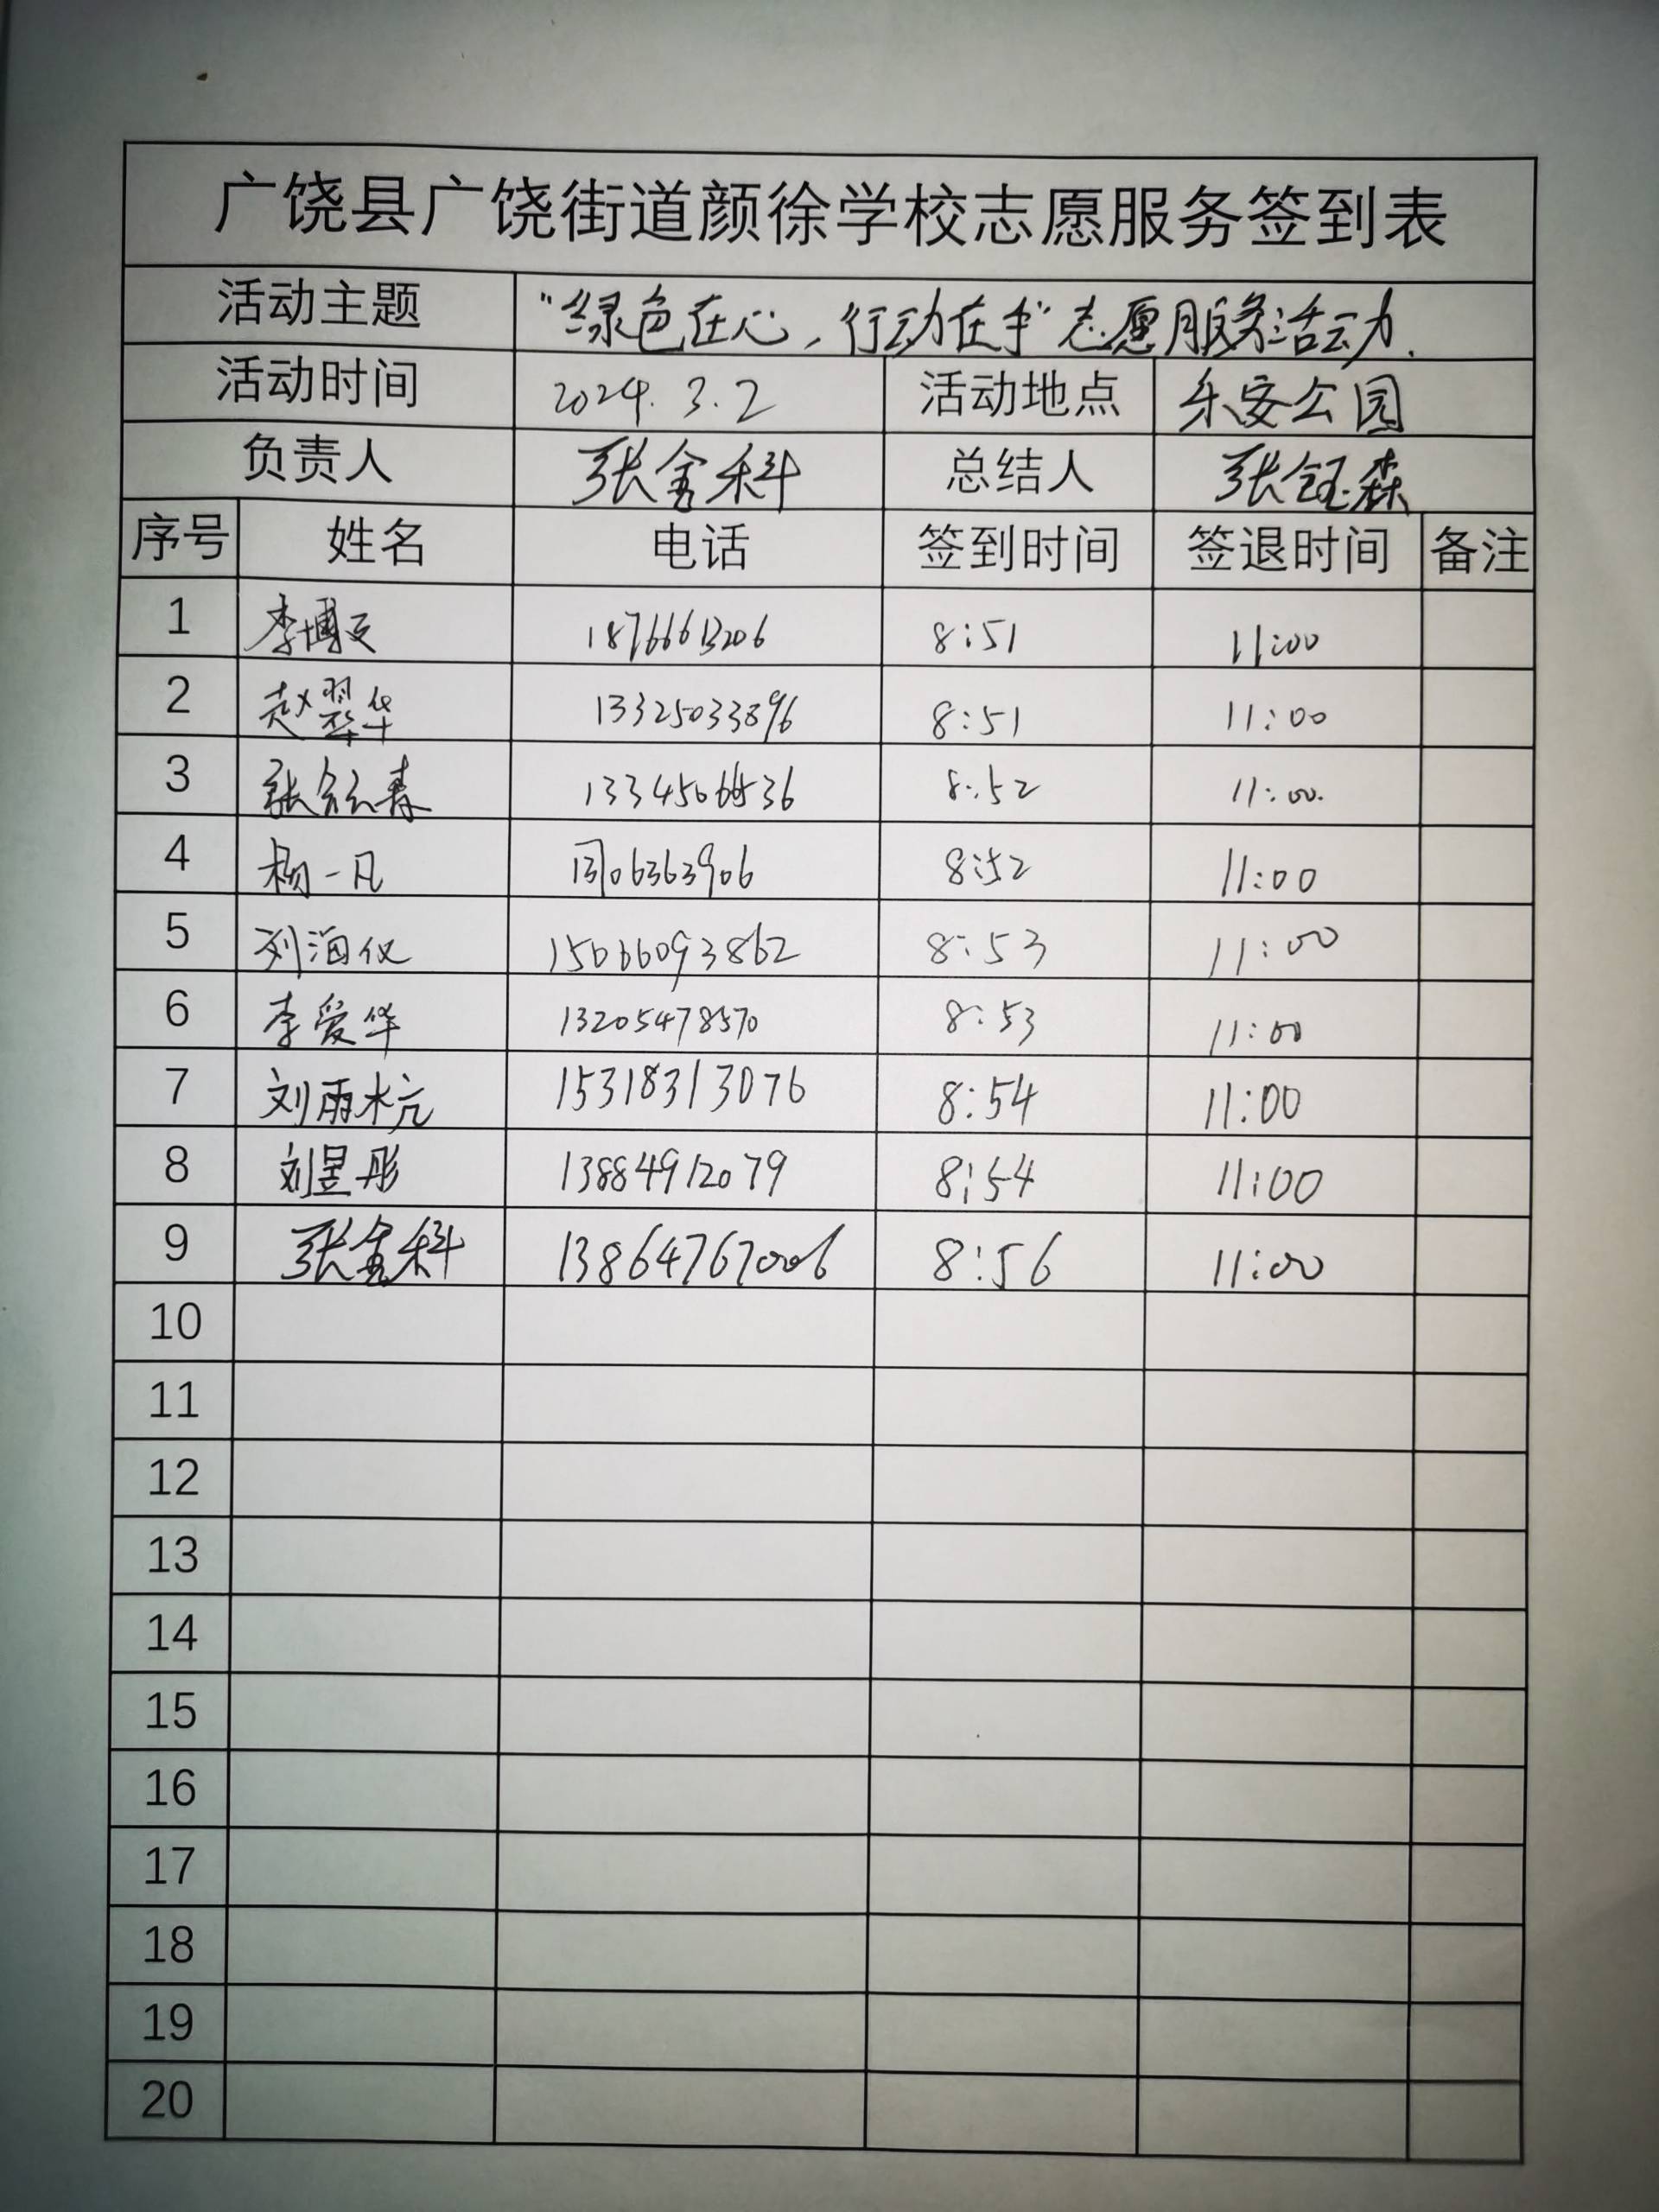 广饶县广饶街道颜徐学校志愿服务签到表
活动主题 “绿色在心，行动在手”志愿服务活动.
活动时间 2024.3.2 活动地点 乐安公园
负责人 张金科 总结人 张钰森
序号 姓名 电话 签到时间 签退时间 备注
1 李博文 18766613206 8:51 11:00
2 赵翠华 13325033896 8:51 11:00
3 8:52 11:00.
4 杨一凡 8:52 11:00
5 刘海仪 15066093862 8:53 11:00
6 李爱华 13205478570 8:53 11:00
7 刘雨杭 15318313076 8:54 11:00
8 刘昱彤 13884912079 8:54 11:00
9 张金科 13864767006 8:56 11:00
10
11
12
13
14
15
16
17
18
19
20